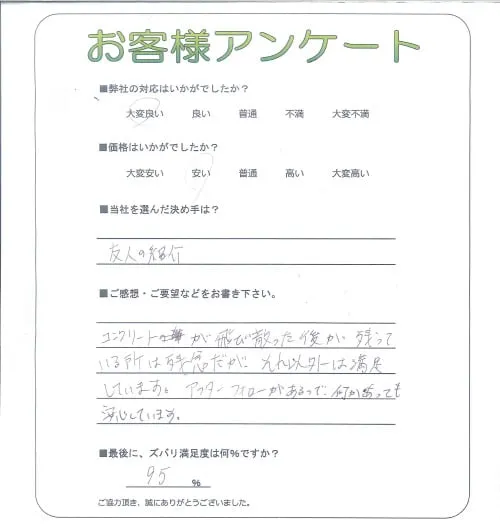 お客様アンケート
■弊社の対応はいかがでしたか？
大変良い 良い 普通 不満 大変不満
■価格はいかがでしたか？
大変安い 安い 普通 高い 大変高い
■当社を選んだ決め手は？
友人の紹介
■ご感想・ご要望などをお書き下さい。
コンクリートが飛び散った後が残って
いる所は残念だが、それ以外は満足
しています。アフターフォローがあるので、何かあっても
安心しています。
■最後に、ズバリ満足度は何%ですか？
95 %
ご協力頂き、誠にありがとうございました。